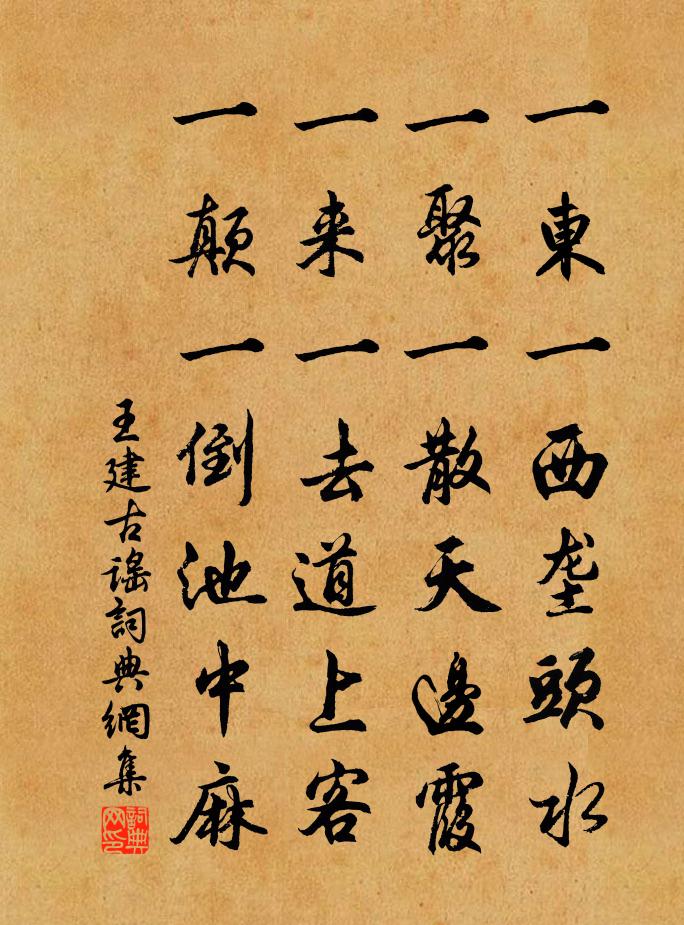 一東一西垄頭水
一聚一散天邊霞
一来一去道上客
一颠一倒池中麻
王建古謡詞典網集
詞典网印